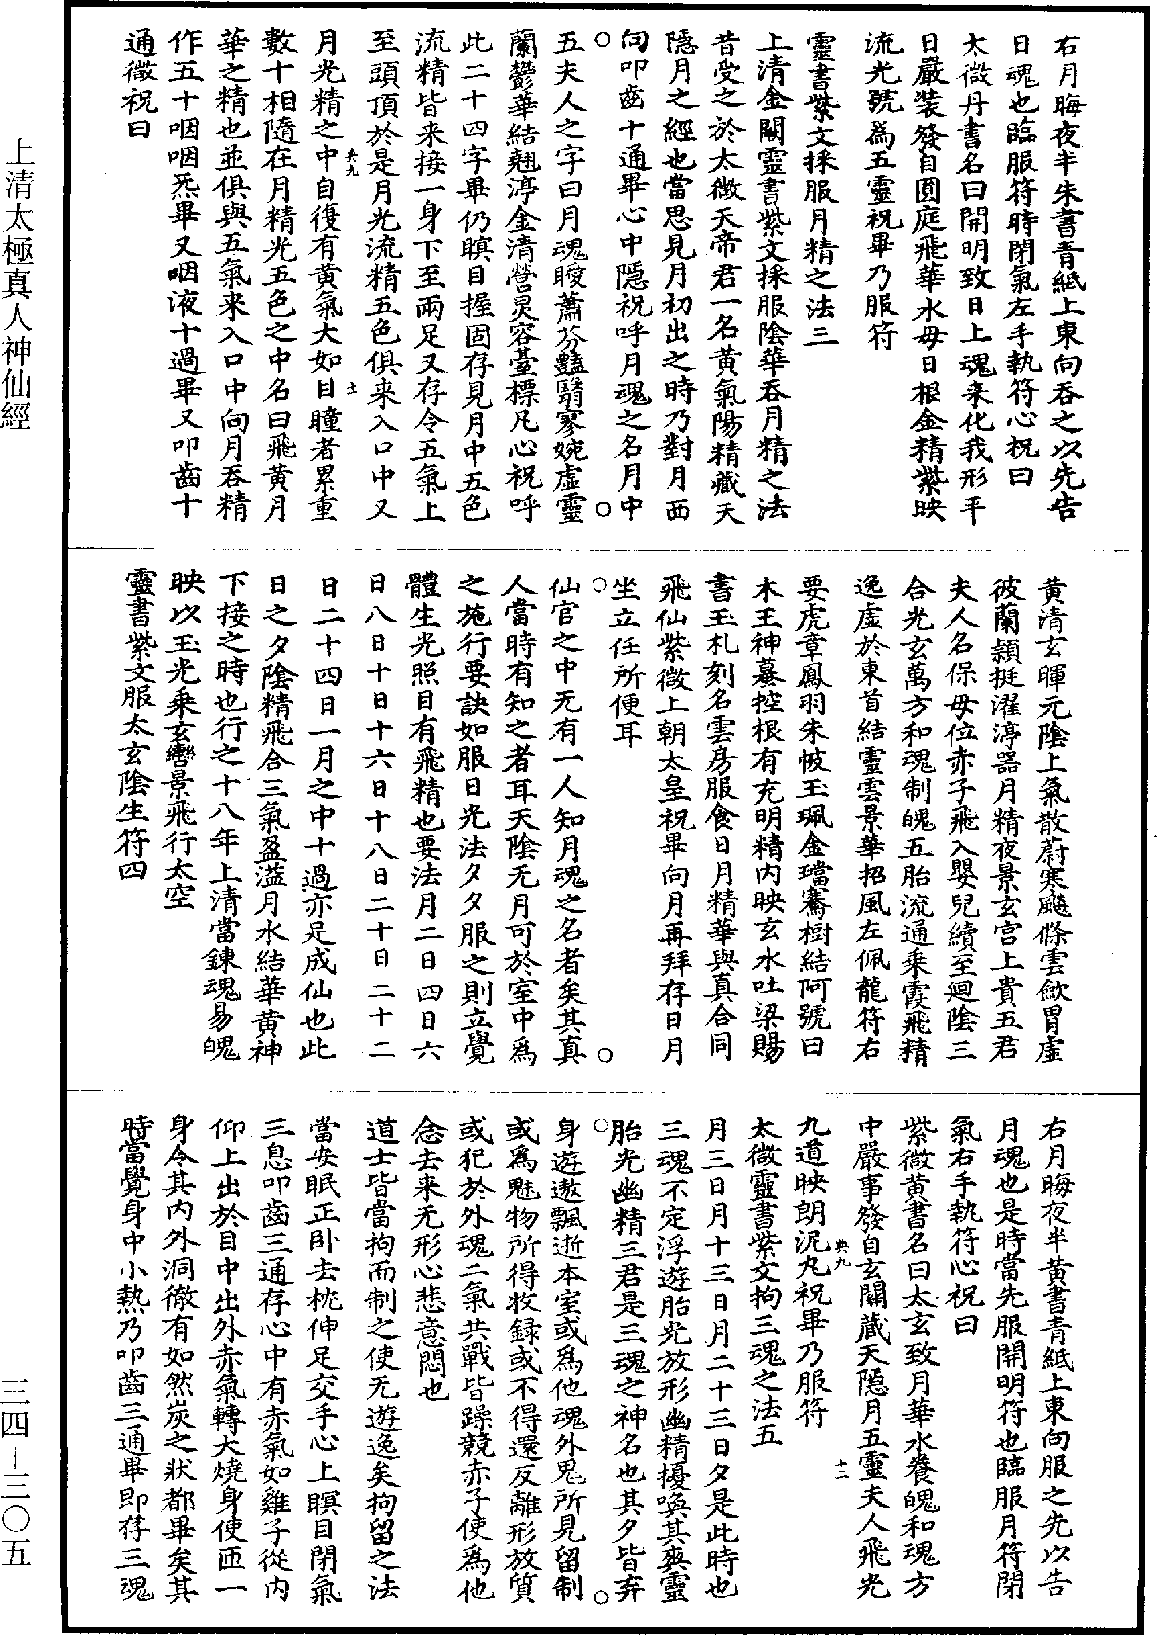 右月晦夜半朱書青紙上東向吞之以先告
日魂也臨服符時閉氣左手執符心祝曰
太微丹書名曰開明致日上魂來化我形平
日嚴裝發自圓庭飛華水母日根金精紫映
流光號為五靈祝畢乃服符
靈書紫文採服月精之法三
上清金闕靈書紫文採服陰華吞月精之法
昔受之於太微天帝君一名黃氣陽精藏天
隱月之經也當思見月初出之時乃對月西
向叩齒十通畢心中隱祝呼月魂之名月中
五夫人之字曰月魂曖蕭芬豔翳寥婉虛靈
蘭鬱華結翹淳金清營炅容臺標凡心祝呼
此二十四字畢仍瞑目握固存見月中五色
流精皆来接一身下至兩足又存令五氣上
至頭頂於是月光流精五色俱来入口中又
月光精之中自復有黃氣大如目瞳者累重
數十相隨在月精光五色之中名曰飛黃月
華之精也並俱與五氣来入口中向月吞精
作五十咽咽炁畢又咽液十過畢又叩齒十
通微祝曰
黃清玄暉元陰上氣散蔚寒飇條雲斂胃虛
彼蘭穎挺濯渟器月精夜景玄宮上貴五君
夫人名保母位赤子飛入嬰兒續至迴陰三
合光玄萬方和魂制魄五胎流通乘霞飛精
逸虛於東首結靈雲景華招風左佩龍符右
要虎章鳳羽朱帔玉珮金璫騫樹結阿號曰
木王神蟇控根有充明精內映玄水吐梁賜
書玉札刻名雲房服食日月精華與真合同
飛仙紫微上朝太皇祝畢向月再拜存日月
坐立任所便耳
仙官之中无有一人知月魂之名者矣其真
人當時有知之者耳天陰无月可於室中為
之施行要訣如服日光法夕夕服之則立覺
體生光照目有飛精也要法月二日四日六
日八日十日十六日十八日二十日二十二
日二十四日一月之中十過亦足成仙也此
日之夕陰精飛合三氣盈溢月水結華黃神
下接之時也行之十八年上清當鍊魂易魄
映以玉光乘玄轡景飛行太空
靈書紫文服太玄陰生符四
右月晦夜半黃書青紙上東向服之先以告
月魂也是時當先服開明符也臨服月符閉
氣右手執符心祝曰
紫微黃書名曰太玄致月華水養魄和魂方
中嚴事發自玄關藏天隱月五靈夫人飛光
九道映朗泥丸祝畢乃服符
太微靈書紫文拘三魂之法五
月三日月十三日月二十三日夕是此時也
三魂不定浮遊胎光放形幽精擾喚其爽靈
胎光幽精三君是三魂之神名也其夕皆弃
身遊遨飄逝本室或為他魂外鬼所見留制
或為魅物所得收録或不得還反離形放質
或犯於外魂二氣共戰皆躁競赤子使為他
念去来无形心悲意悶也
道士皆當拘而制之使无遊逸矣拘留之法
當安眠正卧去枕伸足交手心上瞑目閉氣
三息叩齒三通存心中有赤氣如雞子從内
仰上出於目中出外赤氣轉大燒身使匝一
身令其内外洞徹有如然炭之狀都畢矣其
時當覺身中小熱乃叩齒三通畢即存三魂
典九
十一
典九
十二
上清太極真人神仙經
三四-三〇五